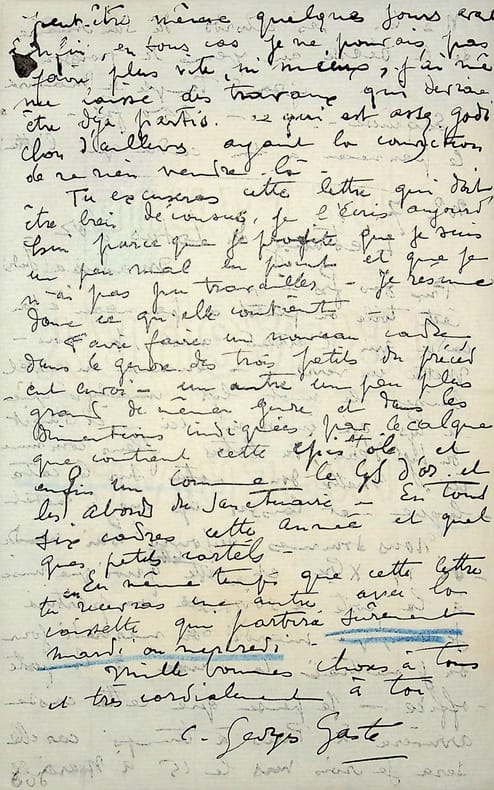 peut-être même quelques jours avant
enfin, en tous cas je ne pouvais pas
faire plus vite, ni mieux, j'ai mê
me laissé des travaux qui devraient
être déjà partis. ce qui est assez godi
chon d'ailleurs ayant la conviction
de ne rien vendre là -
Tu excuseras cette lettre qui doit
être bien décousue, je l'écris aujourd'
hui parce que je profite que je suis
un peu mal en point et que je
n'ai pas pu travailler - Je résume
donc ce qu'elle contient
Faire faire un nouveau cadre
dans le genre des trois petits du précéd
ent envoi - un autre un peu plus
grand de même genre et dans les
dimentions indiquées par le calque
que contient cette epistole et
enfin un comme le d'or et
les Abords du Sanctuaire - En tout
six cadres cette année et quel
ques petits cartels -
En même temps que cette lettre
tu en recevras une autre avec la
caissette qui partira sûrement
mardi ou mercredi -
Mille bonnes choses à tous
et très cordialement à toi
C. Georges Gasté